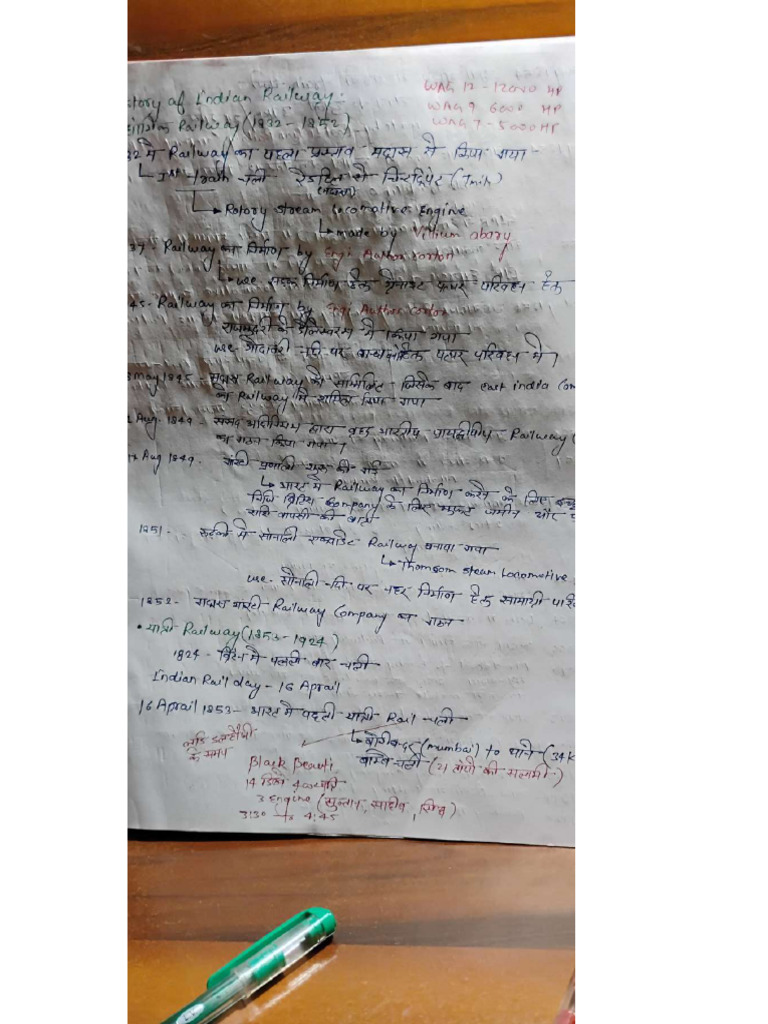 story of Indian Railway:
WAG 12 - 12000 HP
WAG 9 6000 HP
WAG 7 - 5000 HP
Railway (1832 - 1852)
32 मे Railway का पहला प्रस्ताव मद्रास मे किया गया
1st Train चली रेडहिल से चिंताद्रिपेट (
Rotory Stream Locomotive Engine
made by Villium abory
37 - Railway का निर्माण by Engi. Author corton
use सड़क निर्माण हेतु ग्रेनाइट पत्थर परिवहन हेतु
45 - Railway का निर्माण by Engi. Author corton
राजमुंदरी के डोलेस्वरम मे किया गया
use गोदावरी नदी पर बांध हेतु पत्थर परिवहन मे।
8 may 1845 - मद्रास Railway को जिसके बाद east india Com
का Railway मे शामिल किया गया
Aug. 1849 - संसद अधिनियम द्वारा वृहद भारतीय प्रायद्वीपीय Railway (
का गठन किया गया।
Aug 1849. गारंटी प्रणाली शुरू की गई
भारत मे Railway का निर्माण करने के लिए
निधि ब्रिटिश Company के लिए मुफ्त जमीन और
राशि वापसी की
1851 - रूड़की मे सोनाली एक्वाडेट Railway बनाया गया
Thomson steam Locomotive
use. सोनाली नदी पर नहर निर्माण हेतु सामाग्री
1852 - मद्रास गारंटी Railway Company का गठन
• यात्री Railway (1853 - 1924)
1824 - ब्रिटेन मे पहली बार चली
Indian Rail day - 16 Aprail
16 Aprail 1853 - भारत मे पहली यात्री Rail चली
लार्ड डलहौजी
के समय
बोरीबंदर (mumbai) to थाने (34 K
Black Beauti
के बीच चली (21 तोपो की सलामी)
14 डिब्बे 400 यात्री
3 Engine (सुल्तान, साहिब, सिंध)
3:30 to 4:45